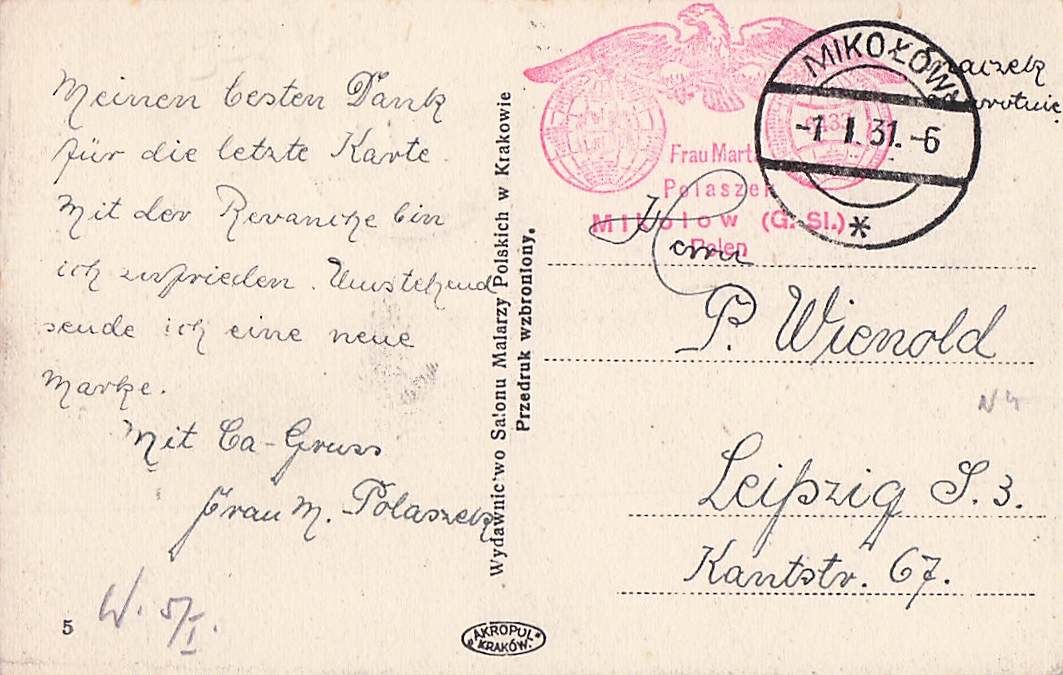 Meinen besten Dank
für die letzte Karte.
Mit der Revanche bin
ich zufrieden. Umstehend
sende ich eine neue
Marke.
Mit Ca-Gruss
Frau M. Polaszek
W. 5/I.
5
Wydawnictwo Salonu Malarzy Polskich w Krakowie
Przedruk wzbroniony.
"AKROPOL"
KRAKÓW.
Frau Mart
Polaszek
Mikolow (G.-Sl.)
Polen
MIKOŁÓW
-1 I. 31.-6
*
znaczek
odwrotnie
Herrn
P. Wienold
N 4
Leipzig S. 3.
Kantstr. 67.